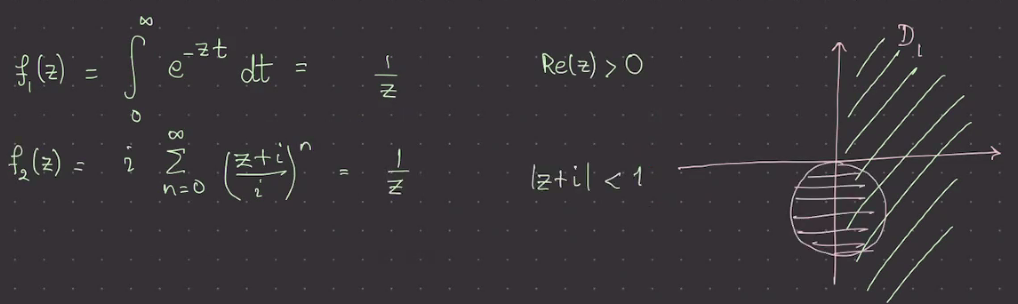 f₁(z) = ∫₀^∞ e^{-zt} dt = 1/z   Re(z) > 0
f₂(z) = i ∑_{n=0}^∞ ((z+i)/i)^n = 1/z   |z+i| < 1
D₁